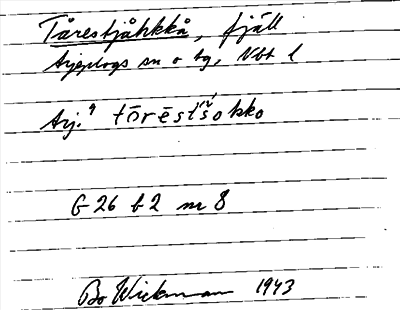 Tårestjåhkkå, fjäll
Arjeplogs sn o tg, Nbt l
Arj. tōrēstš́okko
G 26 b 2 nr 8
Bo Wickmann 1943